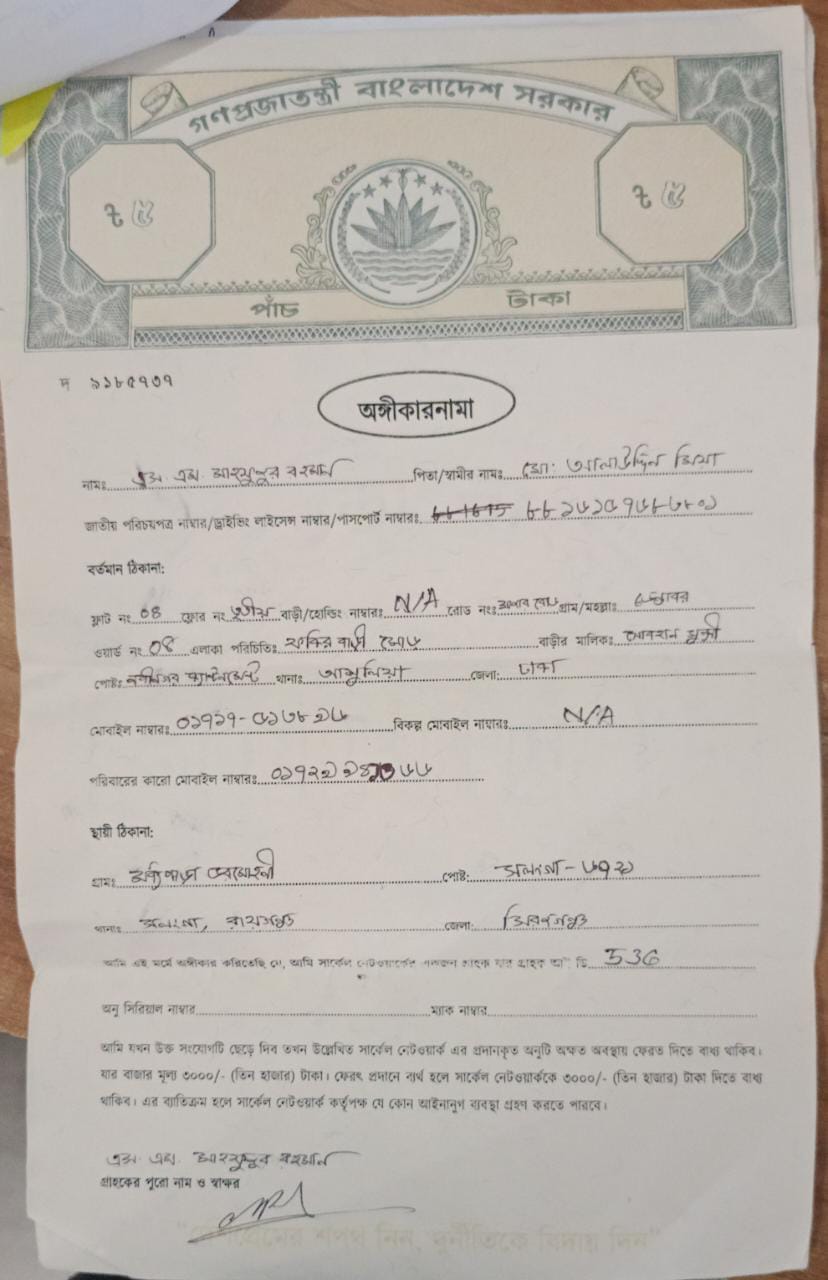 গণপ্রজাতন্ত্রী বাংলাদেশ সরকার
৳ ৫ ৳ ৫
পাঁচ টাকা
দ ৯১৮৫৭৩৭
অঙ্গীকারনামা
নামঃ এস. এম. রহমান পিতা/স্বামীর নামঃ মোঃ আলাউদ্দিন মিয়া
জাতীয় পরিচয়পত্র নাম্বার/ড্রাইভিং লাইসেন্স নাম্বার/পাসপোর্ট নাম্বারঃ
বর্তমান ঠিকানা:
ফ্লাট নং 04 ফ্লোর নং তৃতীয় বাড়ী/হোল্ডিং নাম্বারঃ N/A রোড নংঃ গ্রাম/মহল্লাঃ
ওয়ার্ড নং 04 এলাকা পরিচিতিঃ ফকির বাড়ী মোড় বাড়ীর মালিকঃ মুন্সী
পোষ্টঃ থানাঃ আশুলিয়া জেলা: ঢাকা
মোবাইল নাম্বারঃ বিকল্প মোবাইল নাম্বারঃ N/A
পরিবারের কারো মোবাইল নাম্বারঃ
স্থায়ী ঠিকানা:
গ্রামঃ পোষ্ট: সলংগা - ৬৭২১
থানাঃ সলংগা, রায়গঞ্জ জেলা: সিরাজগঞ্জ
আমি এই মর্মে অঙ্গীকার করিতেছি যে, আমি সার্কেল নেটওয়ার্কের একজন গ্রাহক যার গ্রাহক আই ডি 536
অনু সিরিয়াল নাম্বার ম্যাক নাম্বার
আমি যখন উক্ত সংযোগটি ছেড়ে দিব তখন উল্লেখিত সার্কেল নেটওয়ার্ক এর প্রদানকৃত অনুটি অক্ষত অবস্থায় ফেরত দিতে বাধ্য থাকিব।
যার বাজার মূল্য ৩০০০/- (তিন হাজার) টাকা। ফেরৎ প্রদানে ব্যর্থ হলে সার্কেল নেটওয়ার্ককে ৩০০০/- (তিন হাজার) টাকা দিতে বাধ্য
থাকিব। এর ব্যাতিক্রম হলে সার্কেল নেটওয়ার্ক কর্তৃপক্ষ যে কোন আইনানুগ ব্যবস্থা গ্রহণ করতে পারবে।
এস. এম. রহমান
গ্রাহকের পুরো নাম ও স্বাক্ষর
"দেশপ্রেমের শপথ নিন, দুর্নীতিকে বিদায় দিন"